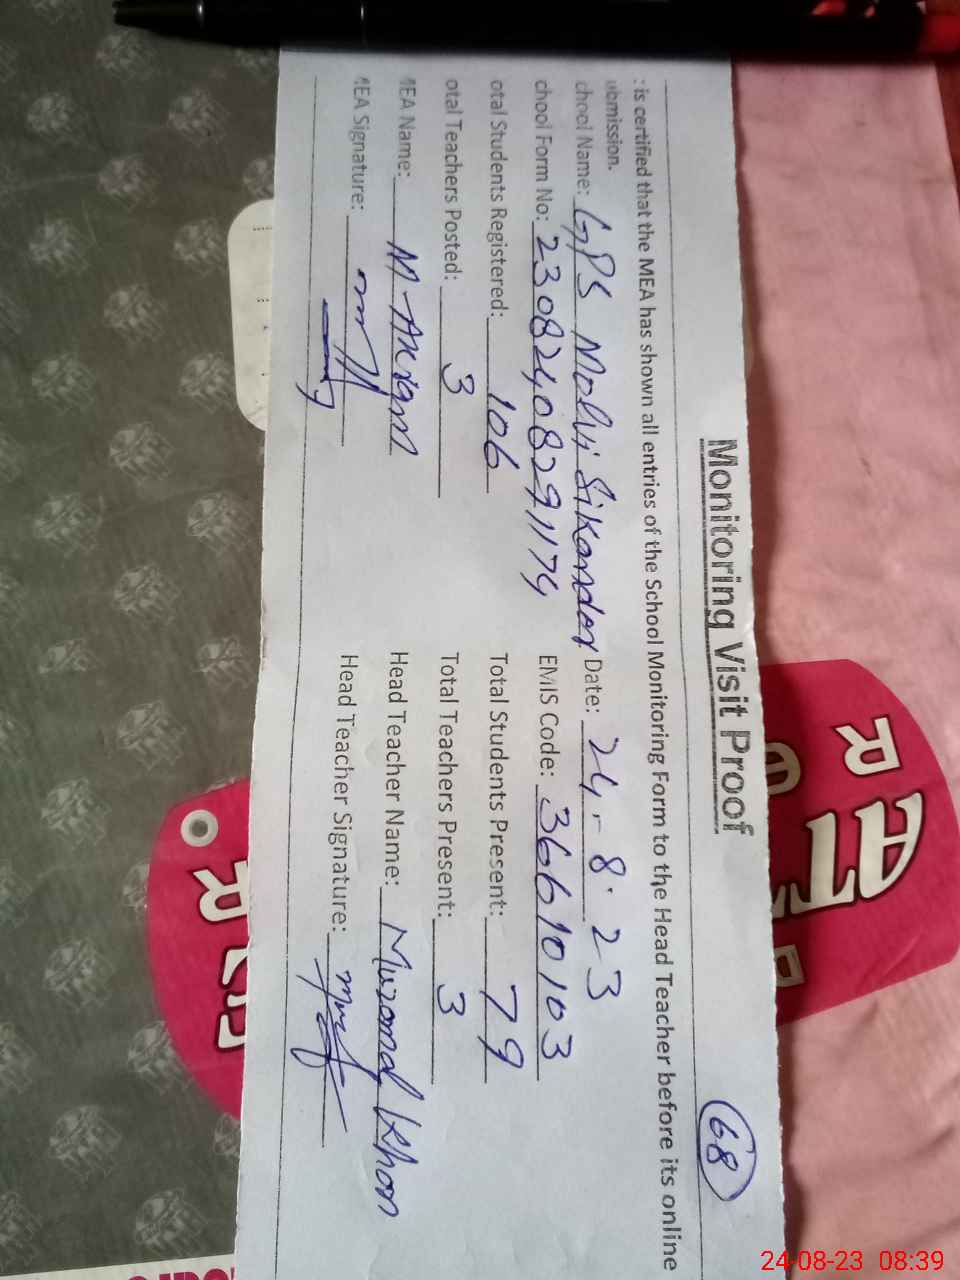 Monitoring Visit Proof
68
: is certified that the MEA has shown all entries of the School Monitoring Form to the Head Teacher before its online
ubmission.
chool Name: GPS Molvi Sikander Date: 24-8-23
chool Form No: 23082408291174 EMIS Code: 36610103
otal Students Registered: 106 Total Students Present: 79
otal Teachers Posted: 3 Total Teachers Present: 3
MEA Name: M Head Teacher Name: Muzamal Khan
MEA Signature: Head Teacher Signature:
24-08-23 08:39